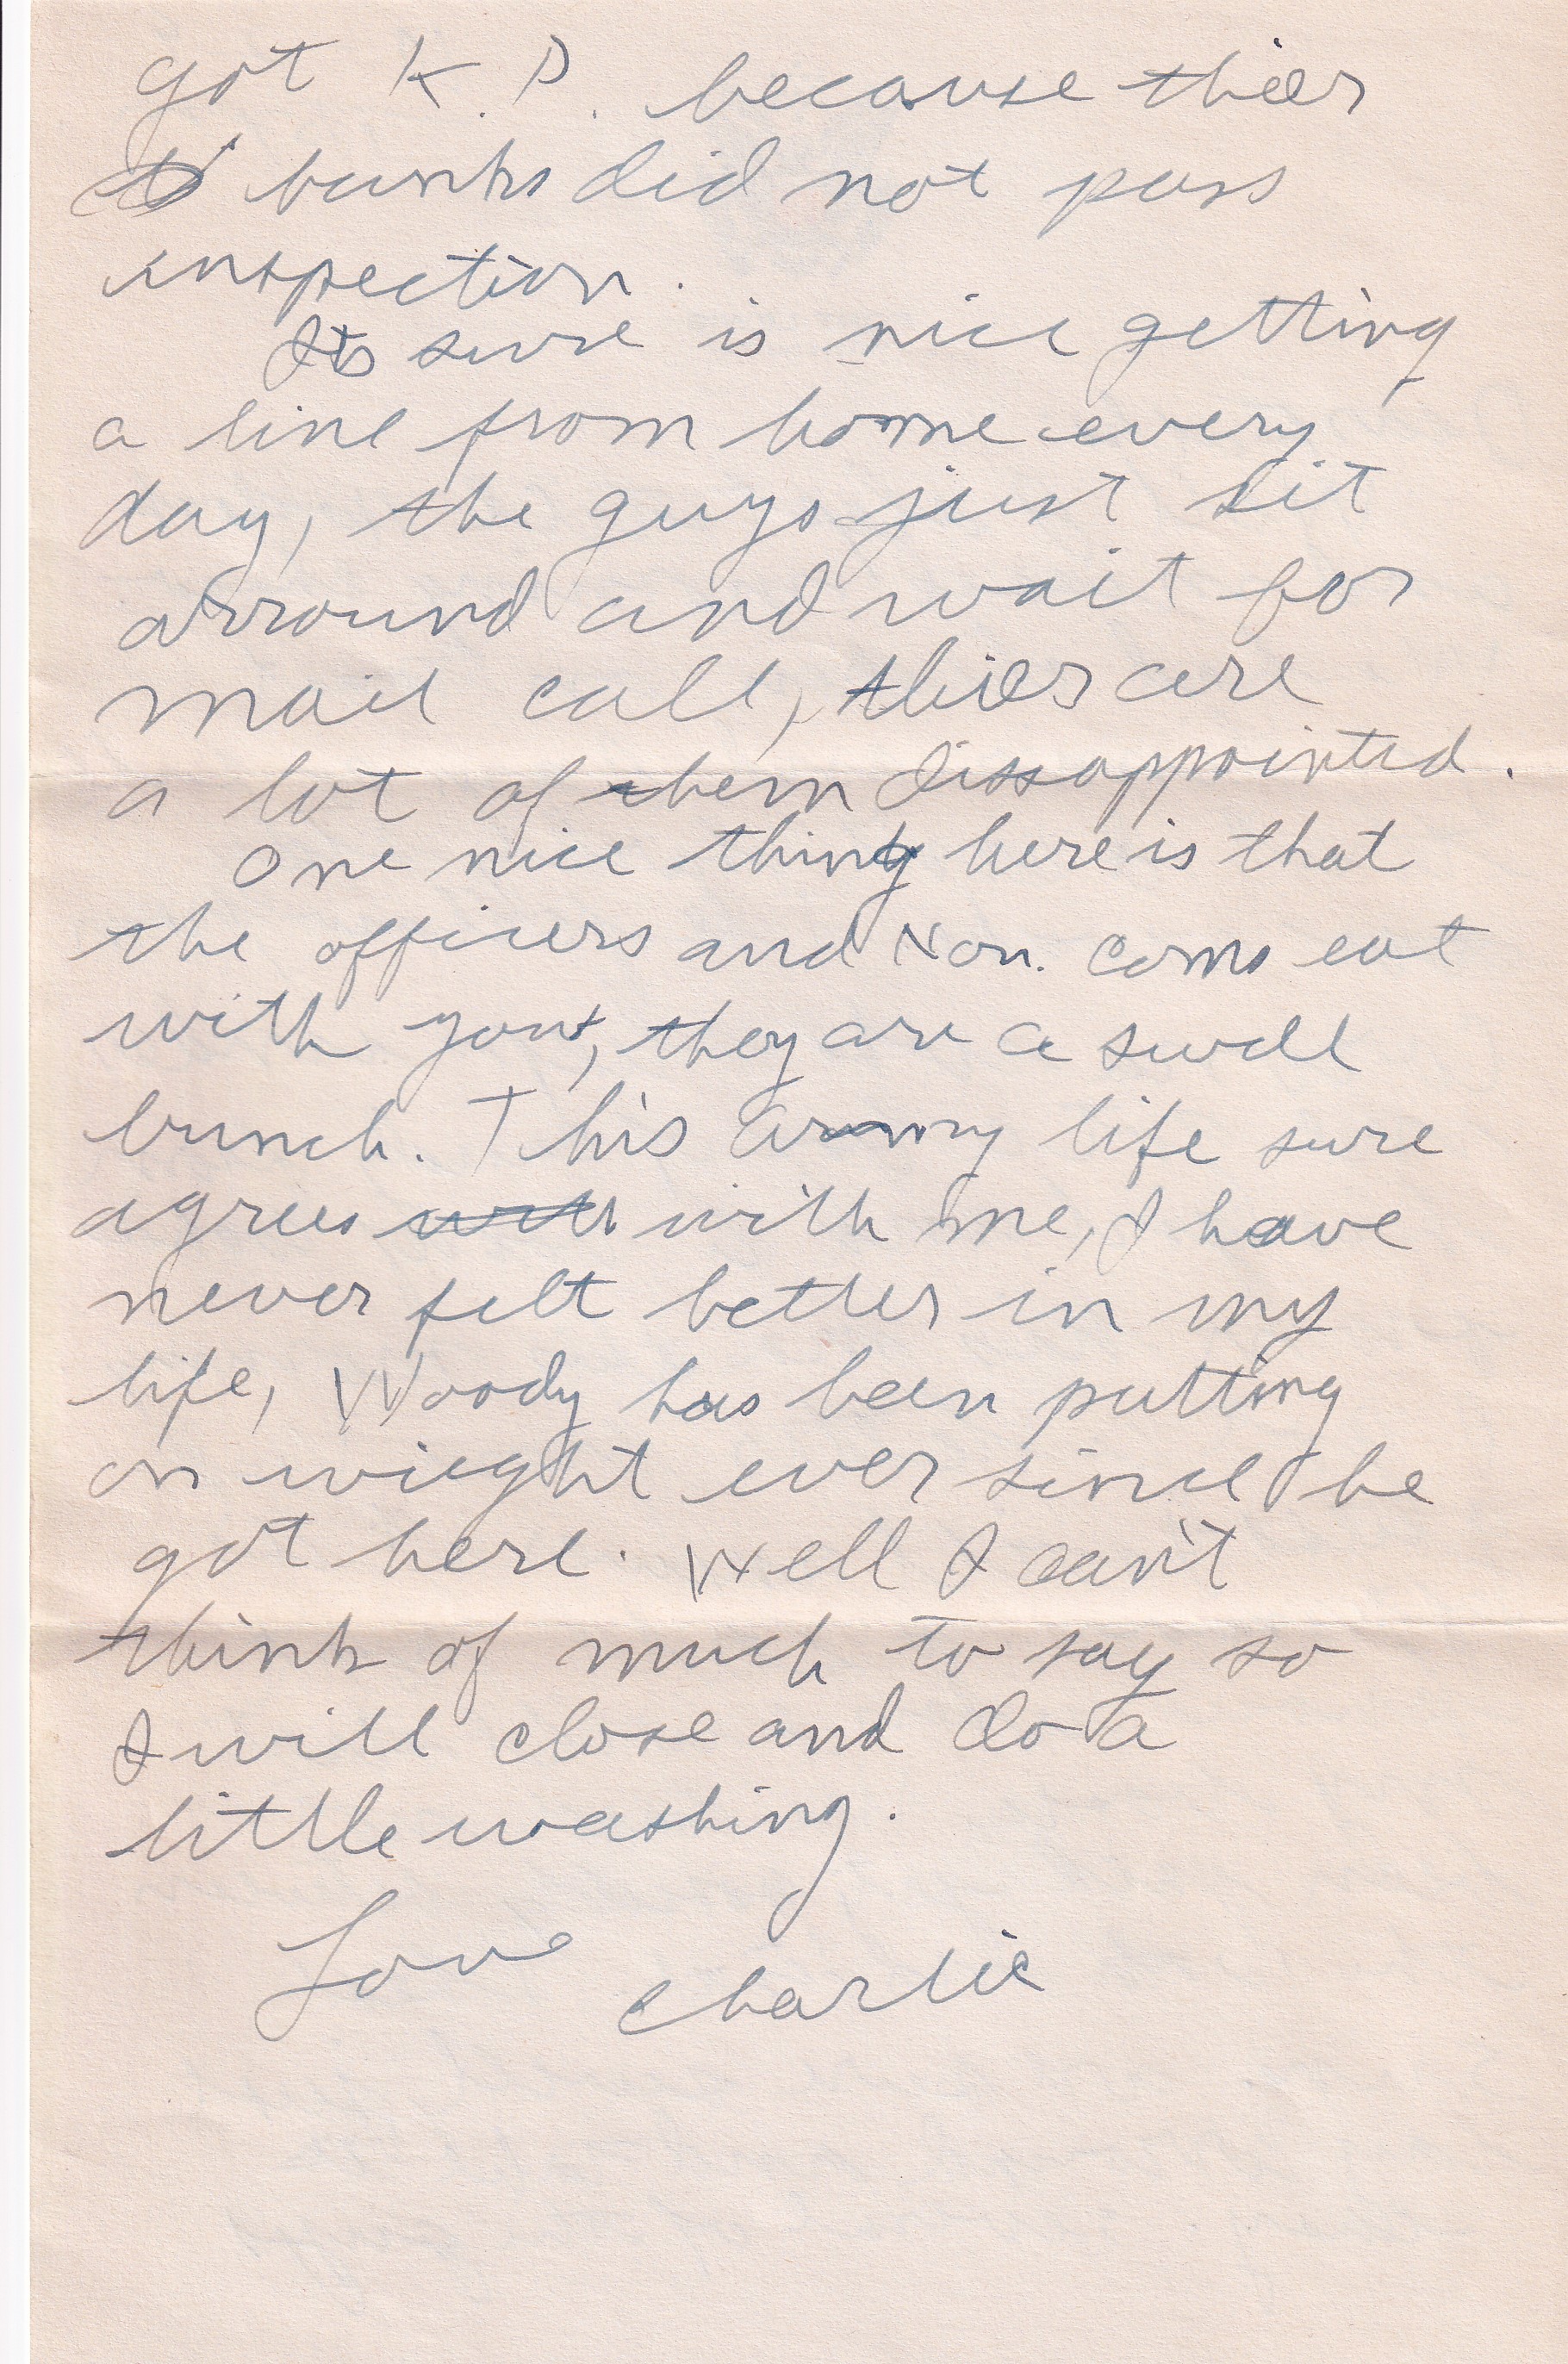 got K.P. because thier
bunks did not pass
inspection.
Its sure is nice getting
a line from home every
day, the guys just sit
arround and wait for
mail call, thier are
a lot of them dissappointed.
One nice thing here is that
the officers and Non. coms eat
with you, they are a swell
bunch. This army life sure
agrees with with me, I have
never felt better in my
life, Woody has been putting
on wieght ever since he
got here. Well I can't
think of much to say so
I will close and do a
little washing.
Love
Charlie